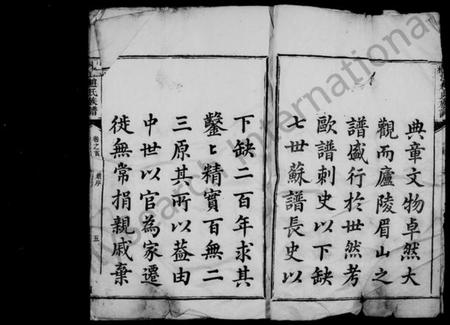 典章文物卓然大
觀而廬陵眉山之
譜盛行於世然考
歐譜刺史以下缺
七世蘇譜長史以
下缺二百年求其
鑿〻精實百無二
三原其所以葢由
中世以官為家遷
徙無常捐親戚棄
氏族譜
卷之首
五
International